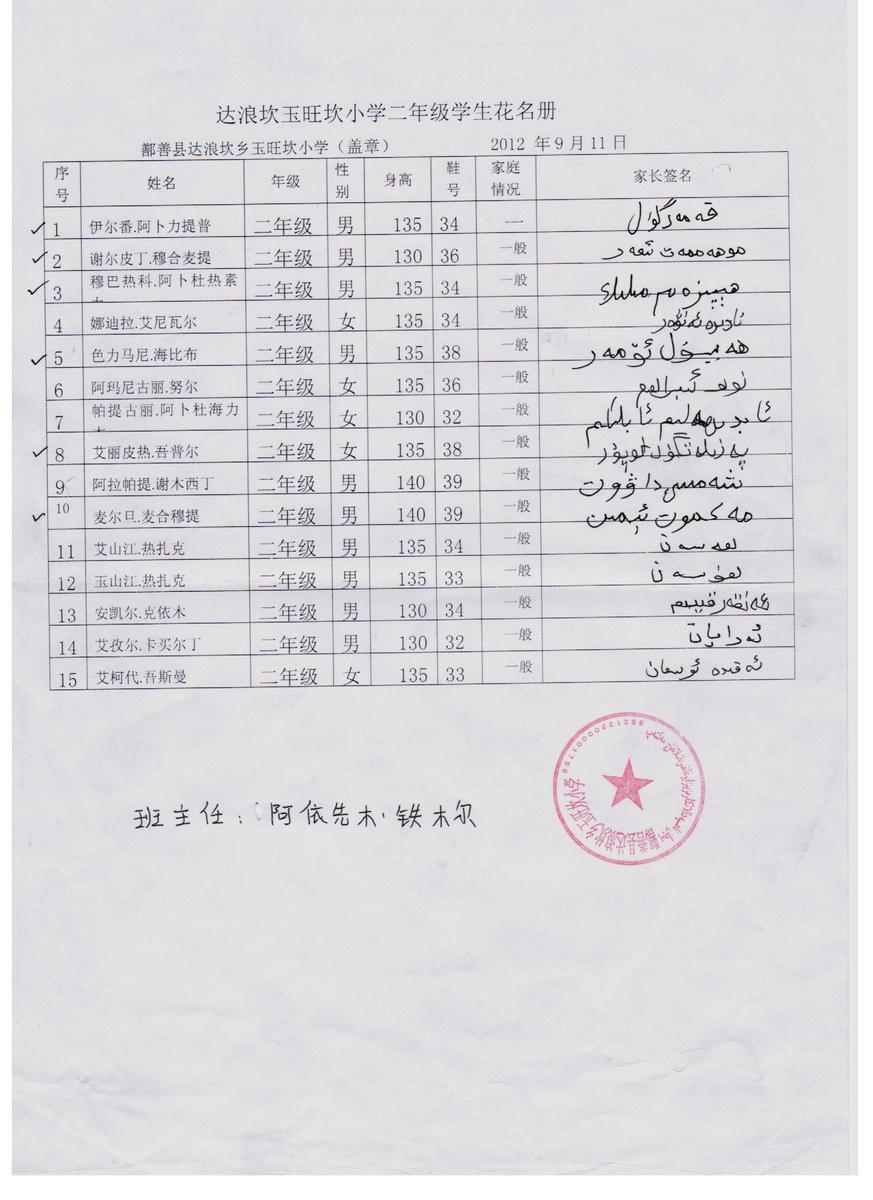 达浪坎玉旺坎小学二年级学生花名册
鄯善县达浪坎乡玉旺坎小学（盖章） 2012 年 9 月 11 日
序号 姓名 年级 性别 身高 鞋号 家庭情况 家长签名
✓ 1 伊尔番.阿卜力提普 二年级 男 135 34 一 قەمەرگۈل
✓ 2 谢尔皮丁.穆合麦提 二年级 男 130 36 一般
✓ 3 穆巴热科.阿卜杜热素 二年级 男 135 34 一般
4 娜迪拉.艾尼瓦尔 二年级 女 135 34 一般
✓ 5 色力马尼.海比布 二年级 男 135 38 一般 ئۆمەر
6 阿玛尼古丽.努尔 二年级 女 135 36 一般
7 帕提古丽.阿卜杜海力 二年级 女 130 32 一般
✓ 8 艾丽皮热.吾普尔 二年级 女 135 38 一般
9 阿拉帕提.谢木西丁 二年级 男 140 39 一般 داۋۇت
✓ 10 麦尔旦.麦合穆提 二年级 男 140 39 一般
11 艾山江.热扎克 二年级 男 135 34 一般
12 玉山江.热扎克 二年级 男 135 33 一般
13 安凯尔.克依木 二年级 男 130 34 一般
14 艾孜尔.卡买尔丁 二年级 男 130 32 一般
15 艾柯代.吾斯曼 二年级 女 135 33 一般
班主任：阿依先木·铁木尔
鄯善县达浪坎乡玉旺坎小学